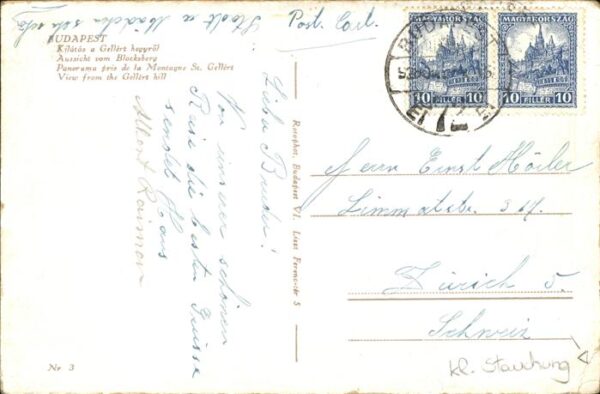 Stadt u. Mädchen sehr
Post. Cart.
BUDAPEST
Kilátás a Gellért hegyről
Aussicht vom Blocksberg
Panorama pris de la Montagne St. Gellért
View from the Gellért hill
MAGYARORSZÁG
10 FILLÉR 10
MAGYARORSZÁG
10 FILLÉR 10
BUDAPEST
72
Lieber Bruder!
Von unserer schönen
Reise die besten Grüsse
sendet Hans
Albert
Rotophot, Budapest VI. Liszt Ferenc-tér 5
Herrn Ernst
Limmatstr. 317.
Zürich 5.
Schweiz
kl. Stauchung
Nr 3